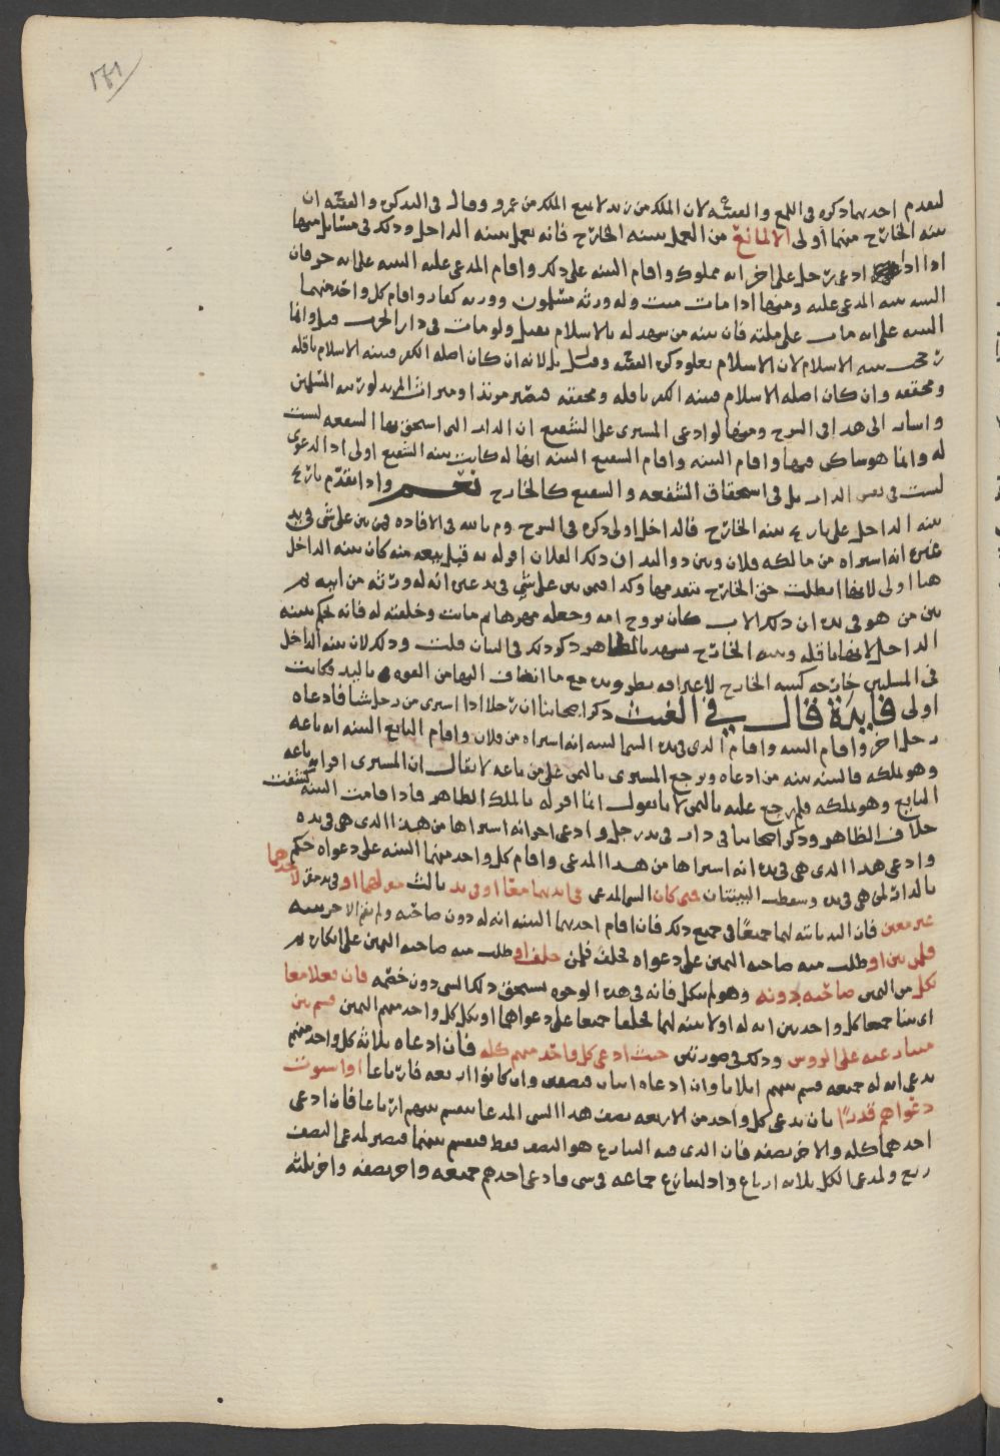 ١٦١
لتقدم احدهما ذكره فى اللمع لان الملك من زيد لا يمنع الملك من عمرو وقال فى التذكره ان
بينه الخارج منهما أولى الا لمانع من العمل ببينه الخارج فانه يعمل ببينه الداخل وذلك فى مسائل منها
اذا ادعى رجل على اخر انه مملوك واقام البينه على ذلك واقام المدعى عليه البينه على انه حر فان
البينه بينه المدعى عليه ومنها اذا مات ميت وله ورثه مسلمون وورثه كفار واقام كل واحد منهما
البينه على انه مات على ملته فان بينه من شهد له بالاسلام تقبل ولو مات فى دار الحرب قيل وانما
رجحت بينه الاسلام لان الاسلام يعلو وقيل بل لانه ان كان اصله الكفر فبينه الاسلام ناقله
ومحققه وان كان اصله الاسلام فبينه الكفر ناقله ومحققه فيصير مرتدا وميراث المرتد لورثته المسلمين
واشار الى هذا فى الشرح ومنها لو ادعى المشترى على الشفيع ان الدار التى استحق بها الشفعه ليست
له وانما هو ساكن فيها واقام البينه واقام الشفيع البينه انها له كانت بينه الشفيع اولى اذ الدعوى
ليست فى نفس الدار بل فى استحقاق الشفعه والشفيع كالخارج نعم واذا تقدم تاريخ
بينه الداخل على تاريخ بينه الخارج فالداخل اولى ذكره فى الشرح ومثله فى الافاده فمن بين على شى فى يد
غيره انه اشتراه من مالكه فلان وبين ذو اليد ان ذلك الفلان اقر له به قبل بيعه منه كان بينه الداخل
هنا اولى لانها ابطلت حق الخارج بتقدمها وكذا فيمن بين على شي فى يد غيره انه له ورثه من ابيه ثم
بين من هو فى يده ان ذلك الاب كان تزوج امه وجعله مهرها ثم ماتت وخلفته له فانه يحكم ببينه
الداخل لانها ناقله وبينه الخارج تشهد بالظاهر ذكر ذلك فى البيان قلت وذلك لان بينه الداخل
فى المسلتين خارجه كبينه الخارج مع ما انضاف اليها من القوه باليد فكانت
اولى فائدة قال في الغيث ذكر اصحابنا ان رجلا اذا اشترى من رجل شيا فادعاه
رجل اخر واقام البينه واقام الذى فى يده الشى البينه انه اشتراه من فلان واقام البايع البينه انه باعه
وهو ملكه فالبينه بينه من ادعاه ويرجع المشترى بالثمن على من باعه لا يقال ان المشترى اقر انه باعه
البايع وهو ملكه فلم يرجع عليه بالثمن لانا نقول انما اقر له بالملك الظاهر فاذا قامت البينه كشفت
خلاف الظاهر وذكر اصحابنا فى دار فى يد رجل وادعى اخر انه اشتراها من هذا الذى هى فى يده
وادعى هذا الذى هى فى يده انه اشتراها من هذا المدعى واقام كل واحد منهما البينه على دعواه حكم
بالدار لمن هى فى يده وسقطت البينتان فمتى كان الشى المدعى فى ايديهما معا او فى يد ثالث مقر لهما او فى يد مقر لاحدهما
غير معين فان اليد ثابته لهما جميعا فى جميع ذلك فان اقام احدهما البينه انه له دون صاحبه ولم يقم الاخر بينه
فلمن بين او طلب منه صاحبه اليمين على دعواه فحلف فلمن حلف او طلب منه صاحبه اليمين على انكاره ثم
نكل من اليمين صاحبه دونه وهو لم ينكل فانه فى هذه الوجوه يستحق ذلك الشى دون خصمه فان فعلا معا
اى بينا جميعا كل واحد بين انه له اولا بينه لهما فحلفا جميعا على دعواهما او نكل كل واحد منهم اليمين قسم بين
متنازعيه على الروس وذلك فى صورتين حيث ادعى كل واحد منهم كله فان ادعاه ثلاثه كل واحد منهم
يدعى انه له جميعه قسم بينهم اثلاثا وان ادعاه اثنان فنصفين وان كانوا اربعه فارباعا او استوت
دعواهم قدرا بان يدعى كل واحد من الاربعه نصف هذا الشى المدعا فيقسم بينهم ارباعا فان ادعى
احدهما كله والاخر نصفه فان الذى فيه التنازع هو النصف فقط فيقسم بينهما فيصير لمدعى النصف
ربع ولمدعى الكل ثلاثه ارباع واذا تنازع جماعه فى شى فادعى احدهم جميعه واخر نصفه واخر ثلثه